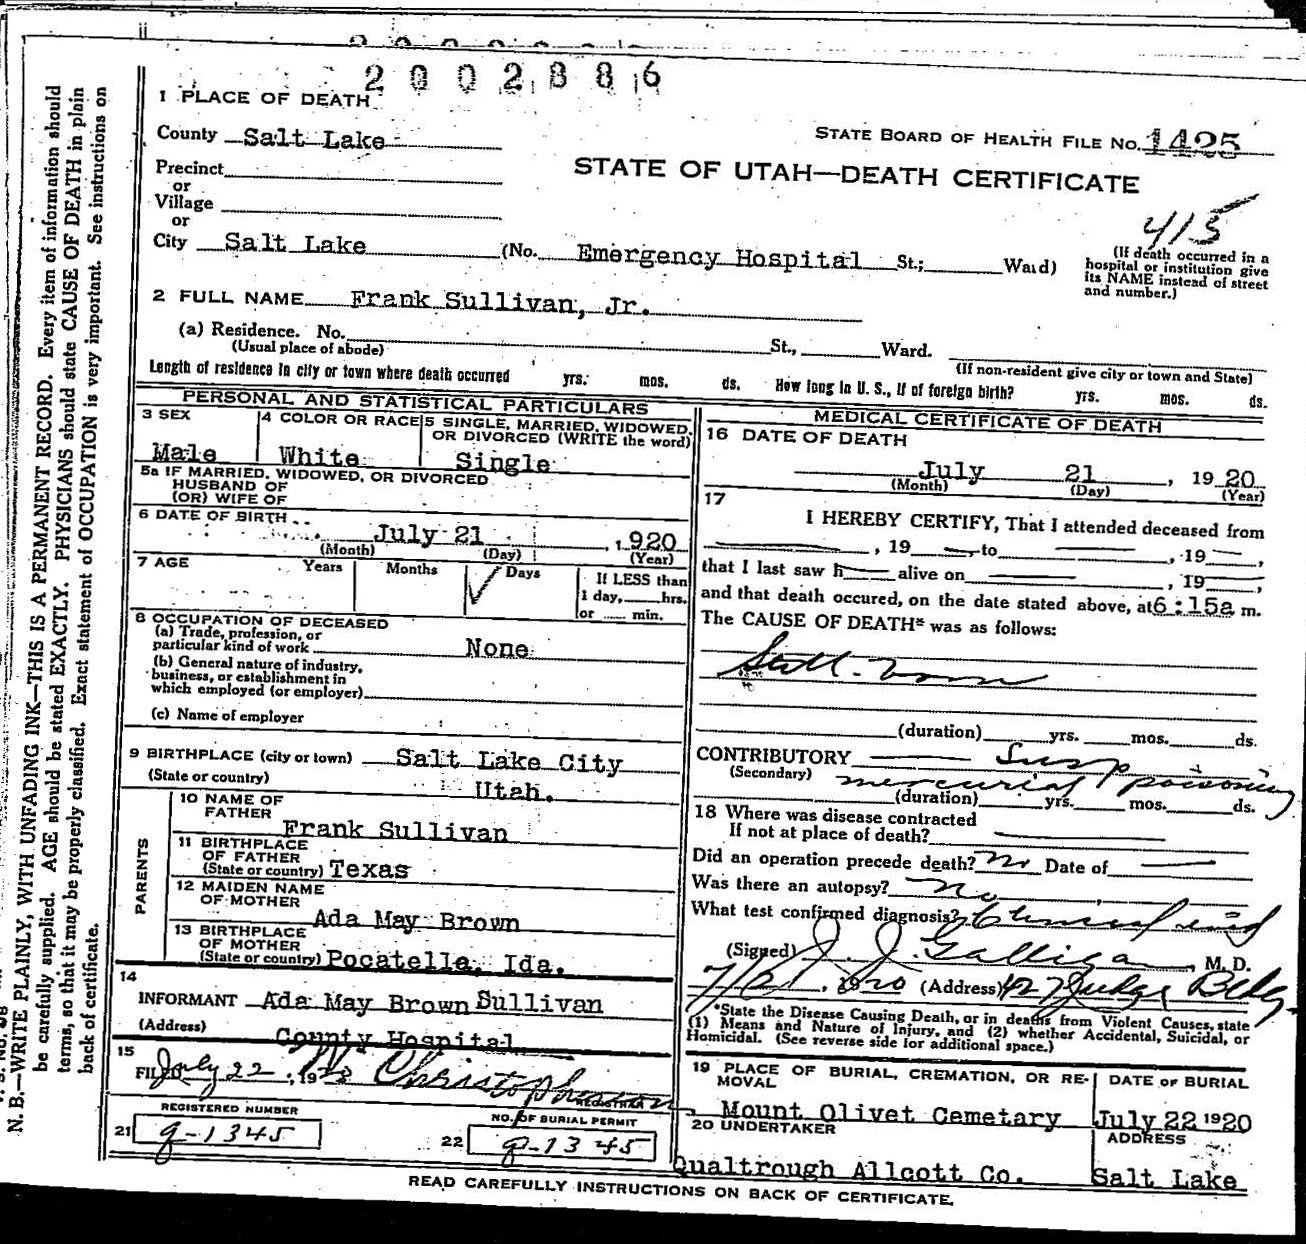 2002886
1 PLACE OF DEATH
County Salt Lake
STATE BOARD OF HEALTH FILE No. 1425
Precinct
STATE OF UTAH—DEATH CERTIFICATE
or
Village
or
415
City Salt Lake (No. Emergency Hospital St.; Ward)
(If death occurred in a
hospital or institution give
its NAME instead of street
and number.)
2 FULL NAME Frank Sullivan, Jr.
(a) Residence. No. St., Ward.
(Usual place of abode)
(If non-resident give city or town and State)
Length of residence in city or town where death occurred yrs. mos. ds. How long in U. S., if of foreign birth? yrs. mos. ds.
PERSONAL AND STATISTICAL PARTICULARS
3 SEX
Male
4 COLOR OR RACE
White
5 SINGLE, MARRIED, WIDOWED,
OR DIVORCED (WRITE the word)
Single
5a IF MARRIED, WIDOWED, OR DIVORCED
HUSBAND OF
(OR) WIFE OF
6 DATE OF BIRTH
July 21, 1920
(Month) (Day) (Year)
7 AGE Years Months Days
If LESS than
1 day, hrs.
or min.
8 OCCUPATION OF DECEASED
(a) Trade, profession, or
particular kind of work None
(b) General nature of industry,
business, or establishment in
which employed (or employer)
(c) Name of employer
9 BIRTHPLACE (city or town) Salt Lake City
(State or country) Utah.
PARENTS
10 NAME OF
FATHER
Frank Sullivan
11 BIRTHPLACE
OF FATHER
(State or country) Texas
12 MAIDEN NAME
OF MOTHER
Ada May Brown
13 BIRTHPLACE
OF MOTHER
(State or country) Pocatella, Ida.
14
INFORMANT Ada May Brown Sullivan
(Address)
County Hospital
15
FILED July 22, 1920 Christopherson
REGISTRAR
REGISTERED NUMBER
21 g-1345
NO. OF BURIAL PERMIT
22 g-1345
MEDICAL CERTIFICATE OF DEATH
16 DATE OF DEATH
July 21, 1920
(Month) (Day) (Year)
17
I HEREBY CERTIFY, That I attended deceased from
, 19 to , 19 ,
that I last saw h alive on , 19 ,
and that death occured, on the date stated above, at 6:15a m.
The CAUSE OF DEATH* was as follows:
Still-born
(duration) yrs. mos. ds.
CONTRIBUTORY Susp
(Secondary) mercurial poisoning
(duration) yrs. mos. ds.
18 Where was disease contracted
If not at place of death?
Did an operation precede death? No Date of
Was there an autopsy? No
What test confirmed diagnosis?
(Signed) J. J. Galligan, M. D.
7/21, 1920 (Address) 427 Judge Bldg
*State the Disease Causing Death, or in deaths from Violent Causes, state
(1) Means and Nature of Injury, and (2) whether Accidental, Suicidal, or
Homicidal. (See reverse side for additional space.)
19 PLACE OF BURIAL, CREMATION, OR RE-
MOVAL
Mount Olivet Cemetary
DATE OF BURIAL
July 22 1920
20 UNDERTAKER
Qualtrough Allcott Co.
ADDRESS
Salt Lake
READ CAREFULLY INSTRUCTIONS ON BACK OF CERTIFICATE.
N. B.—WRITE PLAINLY, WITH UNFADING INK—THIS IS A PERMANENT RECORD. Every item of information should
be carefully supplied. AGE should be stated EXACTLY. PHYSICIANS should state CAUSE OF DEATH in plain
terms, so that it may be properly classified. Exact statement of OCCUPATION is very important. See instructions on
back of certificate.